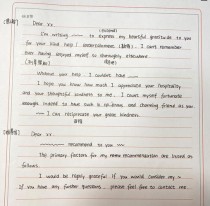 Dear xx.
I'm writing ~~~ to express my heartful gratitude to you
for your kind help / entertainment. I can't remember
ever having enjoyed myself so thoroughly elsewhere.
Without your help, I couldn't have ~~~
I hope you know how much I appreciate your hospitality
and your thoughtful kindness to me. I count myself fortunate
enough indeed to have such a and charming friend as you.
~~~ I can reciprocate your great kindness.
Dear xx.
~~~ recommend to you ~~~
The primary factors for my recommendation are listed as
follows.
I would be highly grateful if you would consider my ~
If you have any further questions, please feel free to contact me.